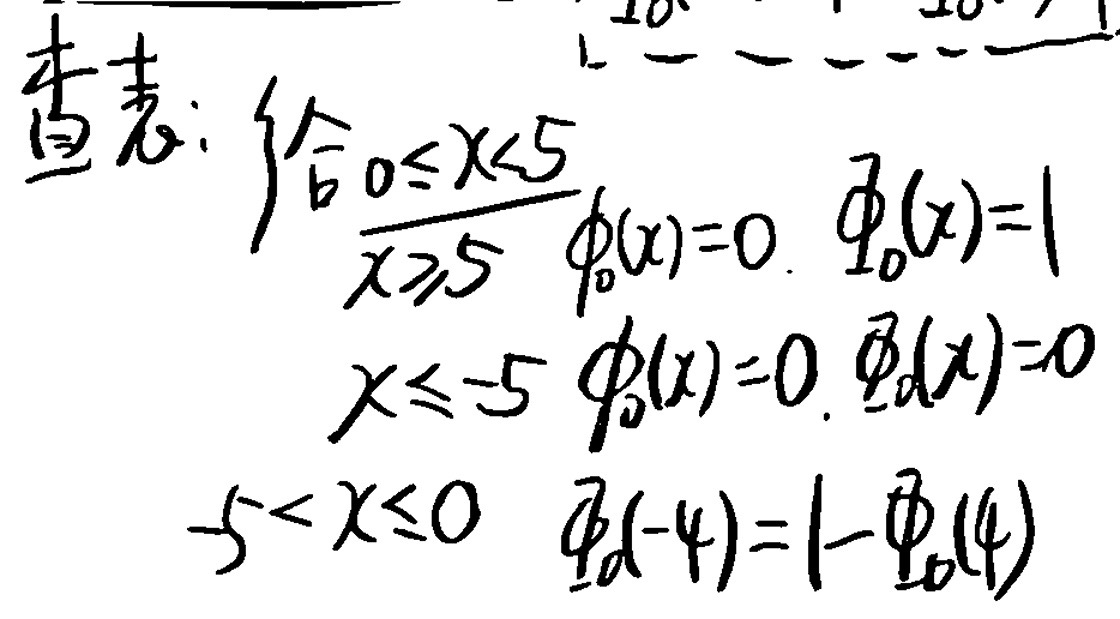 查表: { 给 0≤x<5
x≥5 φ₀(x)=0. Φ₀(x)=1
x≤-5 φ₀(x)=0. Φ₀(x)=0
-5<x≤0 Φ₀(-4)=1-Φ₀(4)